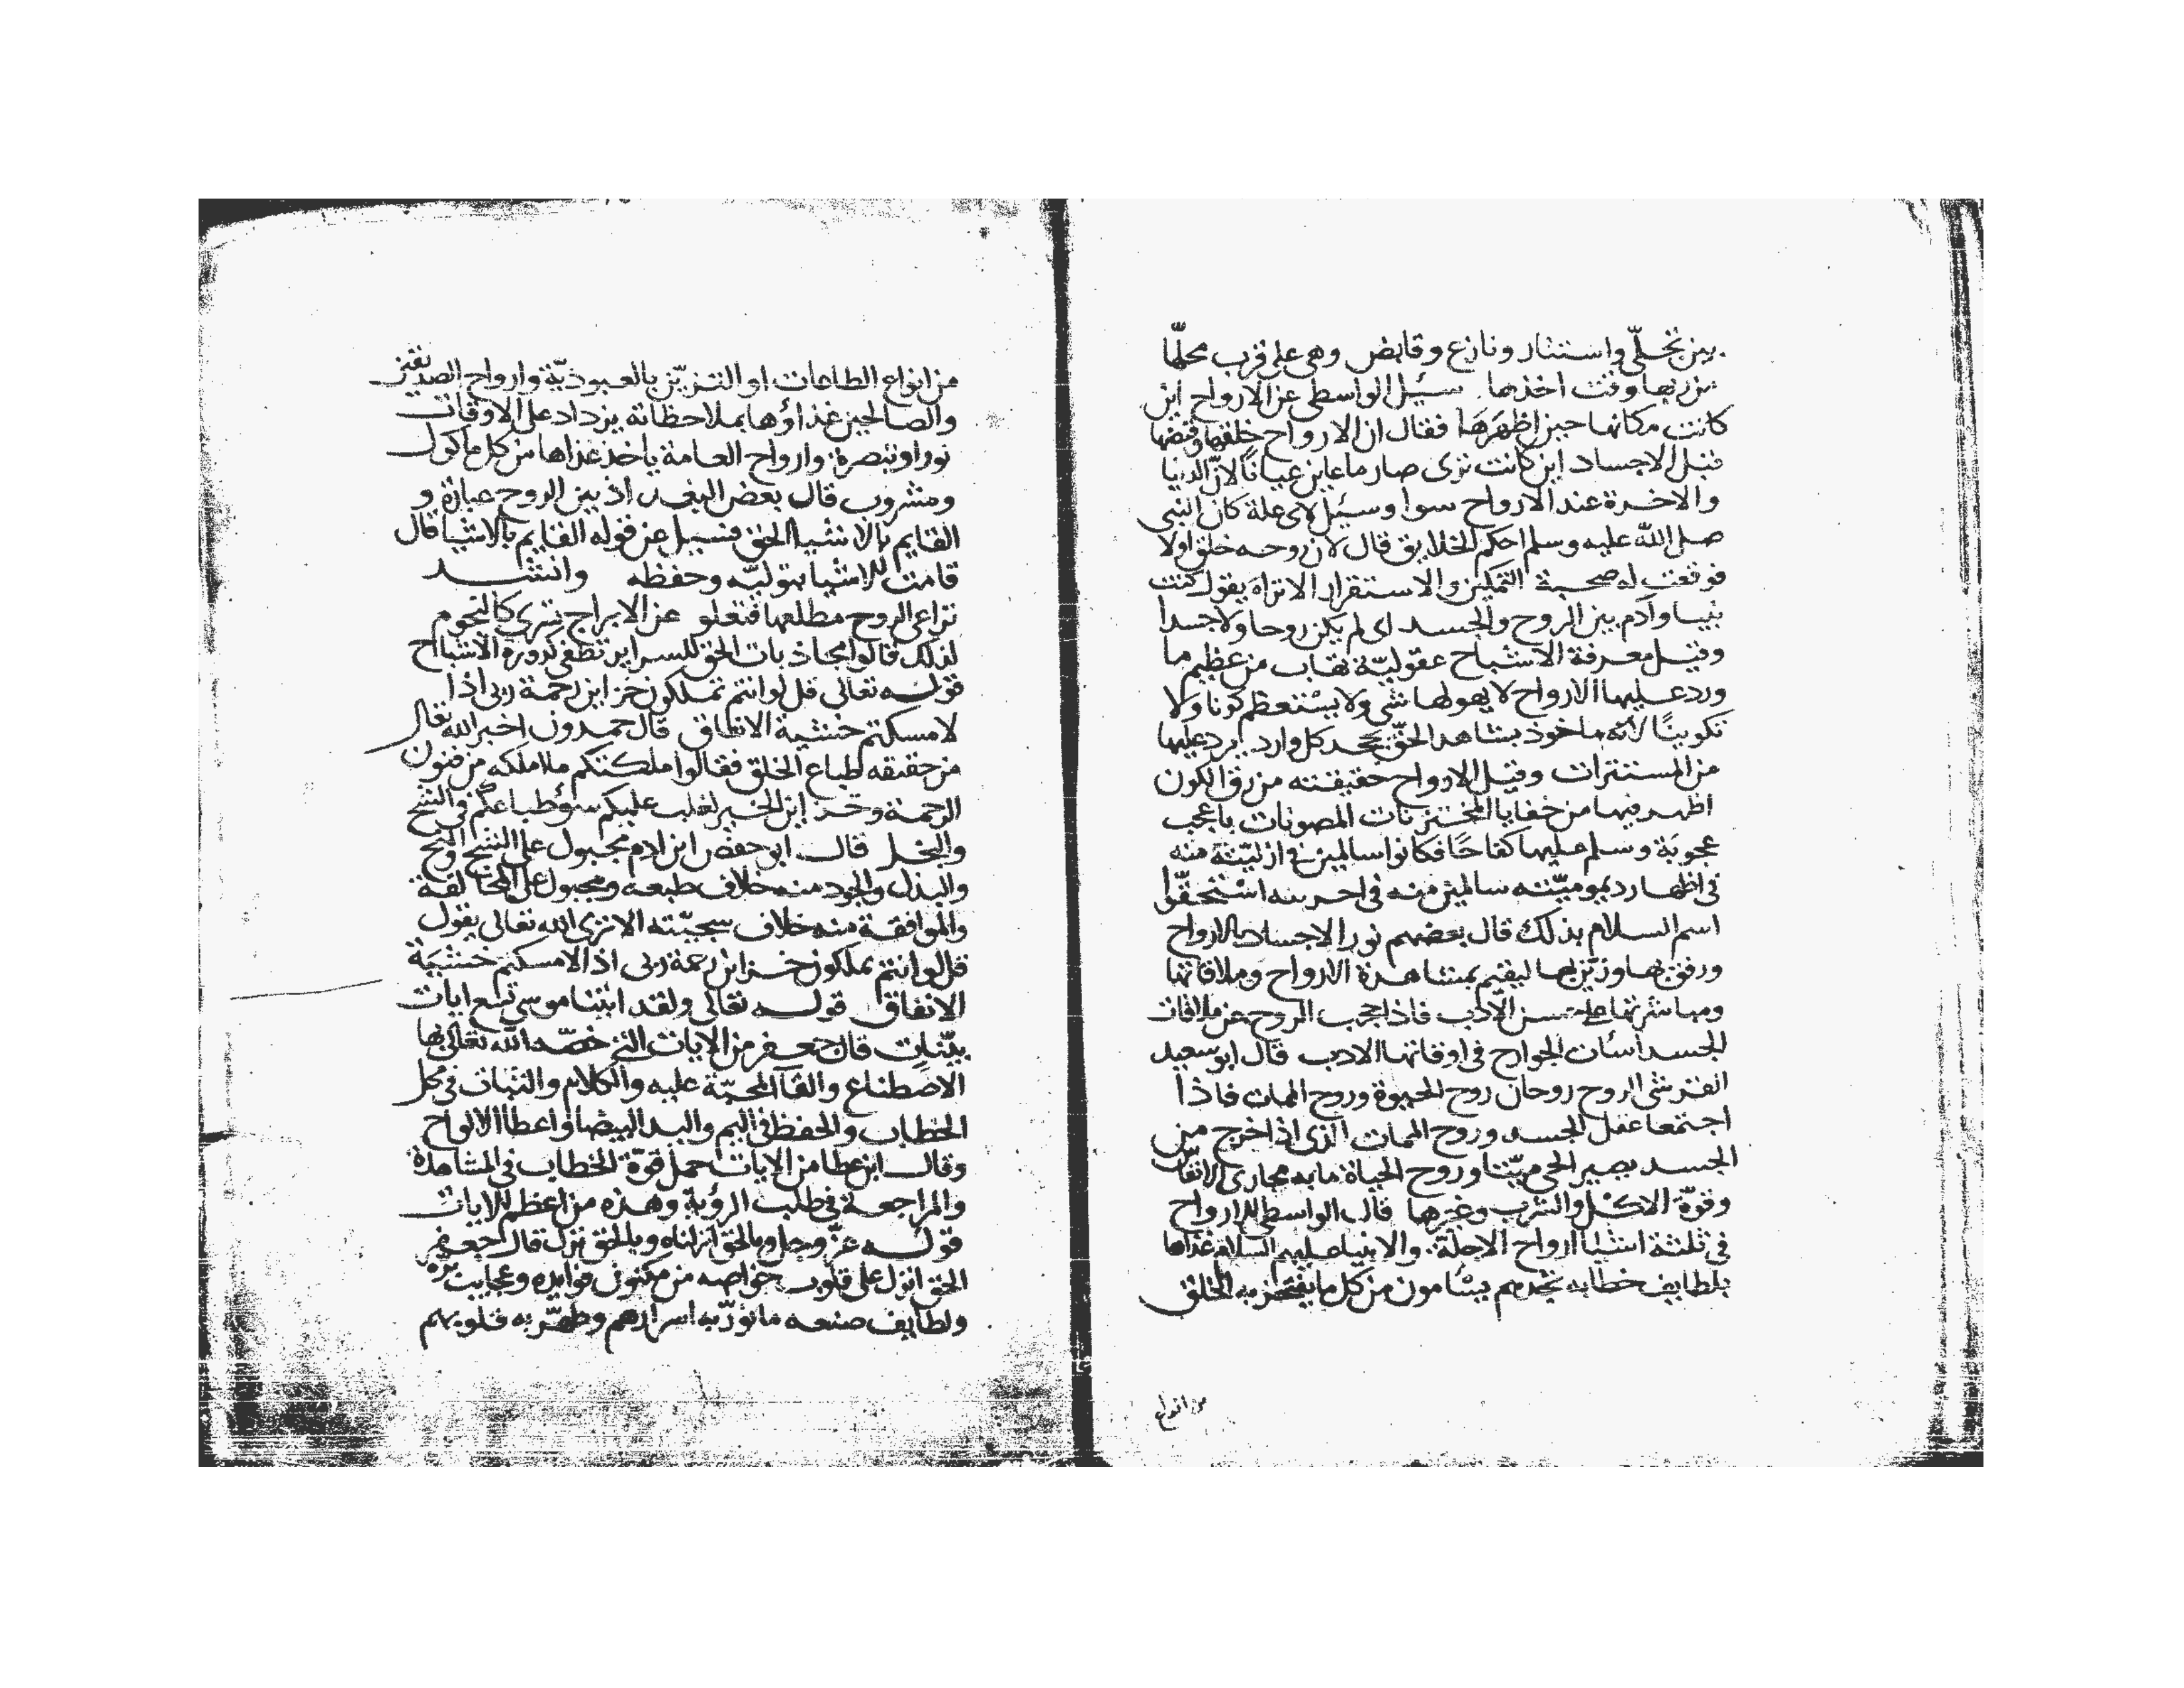 بين تجلّي واستتار ونازع وقابض وهي على قرب محلّها
من ربها وقت اخذها سئل الواسطى عن الارواح اين
كانت مكانها حين اظهرها فقال ان الارواح خلقها وقبضها
قبل الاجساد اين كانت ترى صار ما عاين عيانًا لانّ الدنيا
والاخرة عند الارواح سوا وسئل لاى علة كان النبى
صلى الله عليه وسلم احكم الخلايق قال لان روحه خلق اولا
فوقعت له صحبة التمكين والاستقرار الا تراه يقول كنت
نبيا وآدم بين الروح والجسد اى لم يكن روحا ولا جسدا
وقيل معرفة الاشباح عقوليّة تهاب من عظيم ما
ورد عليها الارواح لا يهولها شى ولا يستعظم كونا ولا
تكوينًا لانه ماخوذ بشاهد الحقّ يجحد كل وارد يرد عليها
من المستترات وقيل الارواح حقيقته من رق الكون
اظهر فيها من خفايا المختزنات المصونات باعجب
عجوبة وسلم عليها كفاحًا فكانوا سالمين فى ازليّته منه
فى اظهار ديموميّته سالمين منه فى احر استحقّوا
اسم السلام بذلك قال بعضهم نور الاجساد بالارواح
ورفق بها وزيّن بها ليقيم بمشاهدة الارواح وملاقاتها
ومباشرتها على حسن الادب فاذا حجب الروح عن ملاقات
الجسد اسأت الجوارح فى اوقاتها الادب قال ابو سعيد
القرشى الروح روحان روح الحيوة وروح الممات فاذا
اجتمعا عقل الجسد وروح الممات الذى اذا خرج من
الجسد يصير الحى ميّتا وروح الحياة ما به مجارى الانفاس
وقوّة الاكل والشرب وغيرها قال الواسطى الارواح
فى ثلثة اشيا ارواح الاجلة والانبيا عليهم السلام غذاها
بلطايف خطابه تجدهم يسأمون من كل ما يفتخر به الخلق
من انواع
من انواع الطاعات او التزيّن بالعبوديّة وارواح الصديقين
والصالحين غذاؤها بملاحظاته يزداد على الاوقات
نورا وتبصرة وارواح العامة ياخذ غذاها من كل ماكول
ومشروب قال بعض البغد اذ بين الروح عبارة و
القايم بالاشيا الحق فسيل عن قوله القايم بالاشيا قال
قامت الاشيا بتوليّه وحفظه وانشد
تراعى الروح مطلعها فتعلو عن الابراج تسرى كالنجوم
لذلك قالوا مجاذبات الحق للسراير تطفى كدورة الاشباح
قوله تعالى قل لو انتم تملكون خزاين رحمة ربى اذا
لامسكتم خشية الانفاق قال حمدون اخبر الله تعالى
من حقيقه طباع الخلق فقالوا ملكتكم ما املكه من فنون
الرحمة وخزاين الخير لغلب عليكم سؤ طباعكم فى الشح
والبخل قال ابو حفص ابن ادم مجبول على الشح والبخ
والبذل والجود منه خلاف طبعه ومجبول على المخالفة
والموافقة منه خلاف سجيّته الا ترى الله تعالى يقول
قل لو انتم تملكون خزاين رحمة ربى اذا لامسكتم خشية
الانفاق قوله تعالى ولقد اتينا موسى تسع ايات
بيّنات قال جعفر من الايات التى خصّه الله تعالى بها
الاصطناع والقآ المحبّة عليه والكلام والثبات فى محل
الخطاب والحفظ فى اليم واليد البيضا واعطا الالواح
وقال ابن عطا من الايات حمل قوّة الخطاب فى المشاهدة
والمراجعة فى طلب الرؤية وهذه من اعظم الايات
قوله عزّ وجل وبالحق انزلناه وبالحق نزل قال جعفر
الحق انزل على قلوب خواصه من مكنون فوايده وعجايب بره
ولطايف صنعه ما نوّر به اسرارهم وطهّر به قلوبهم